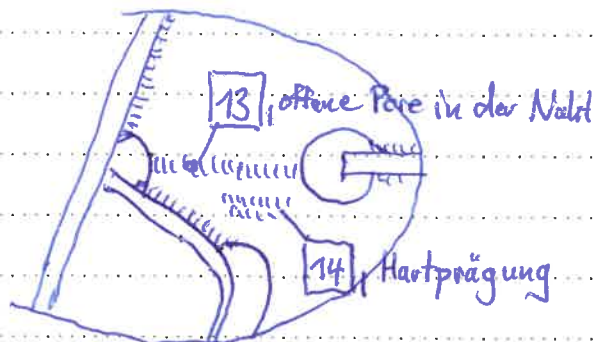 13, offene Pore in der Naht
14, Hartprägung